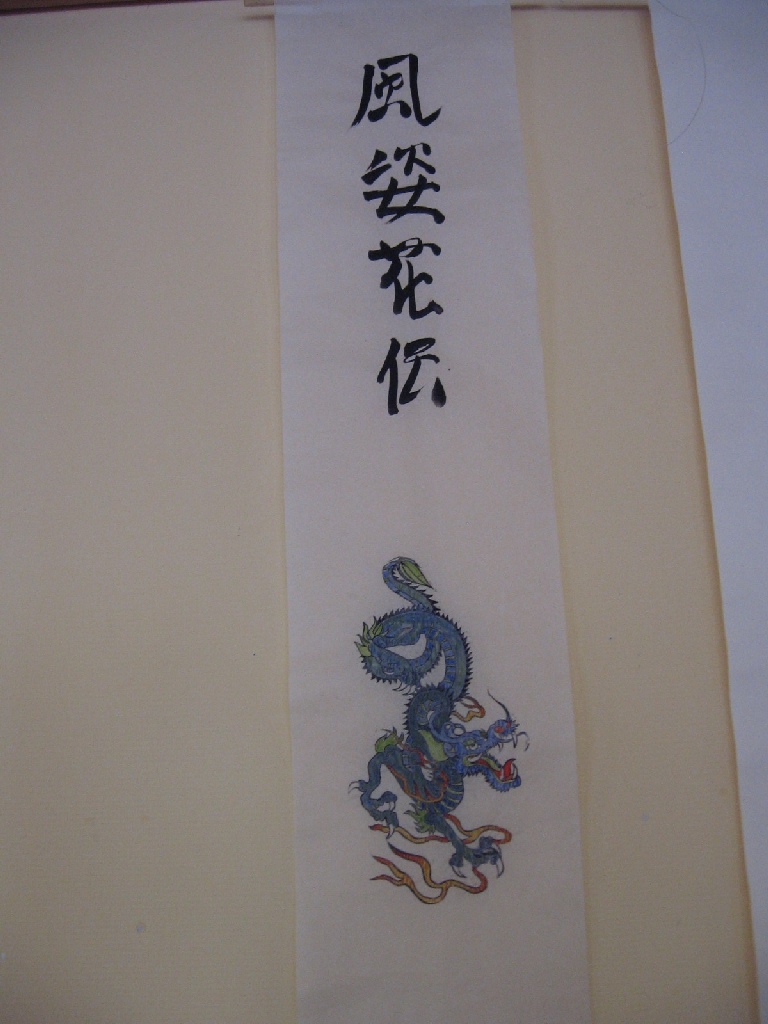 風姿花伝